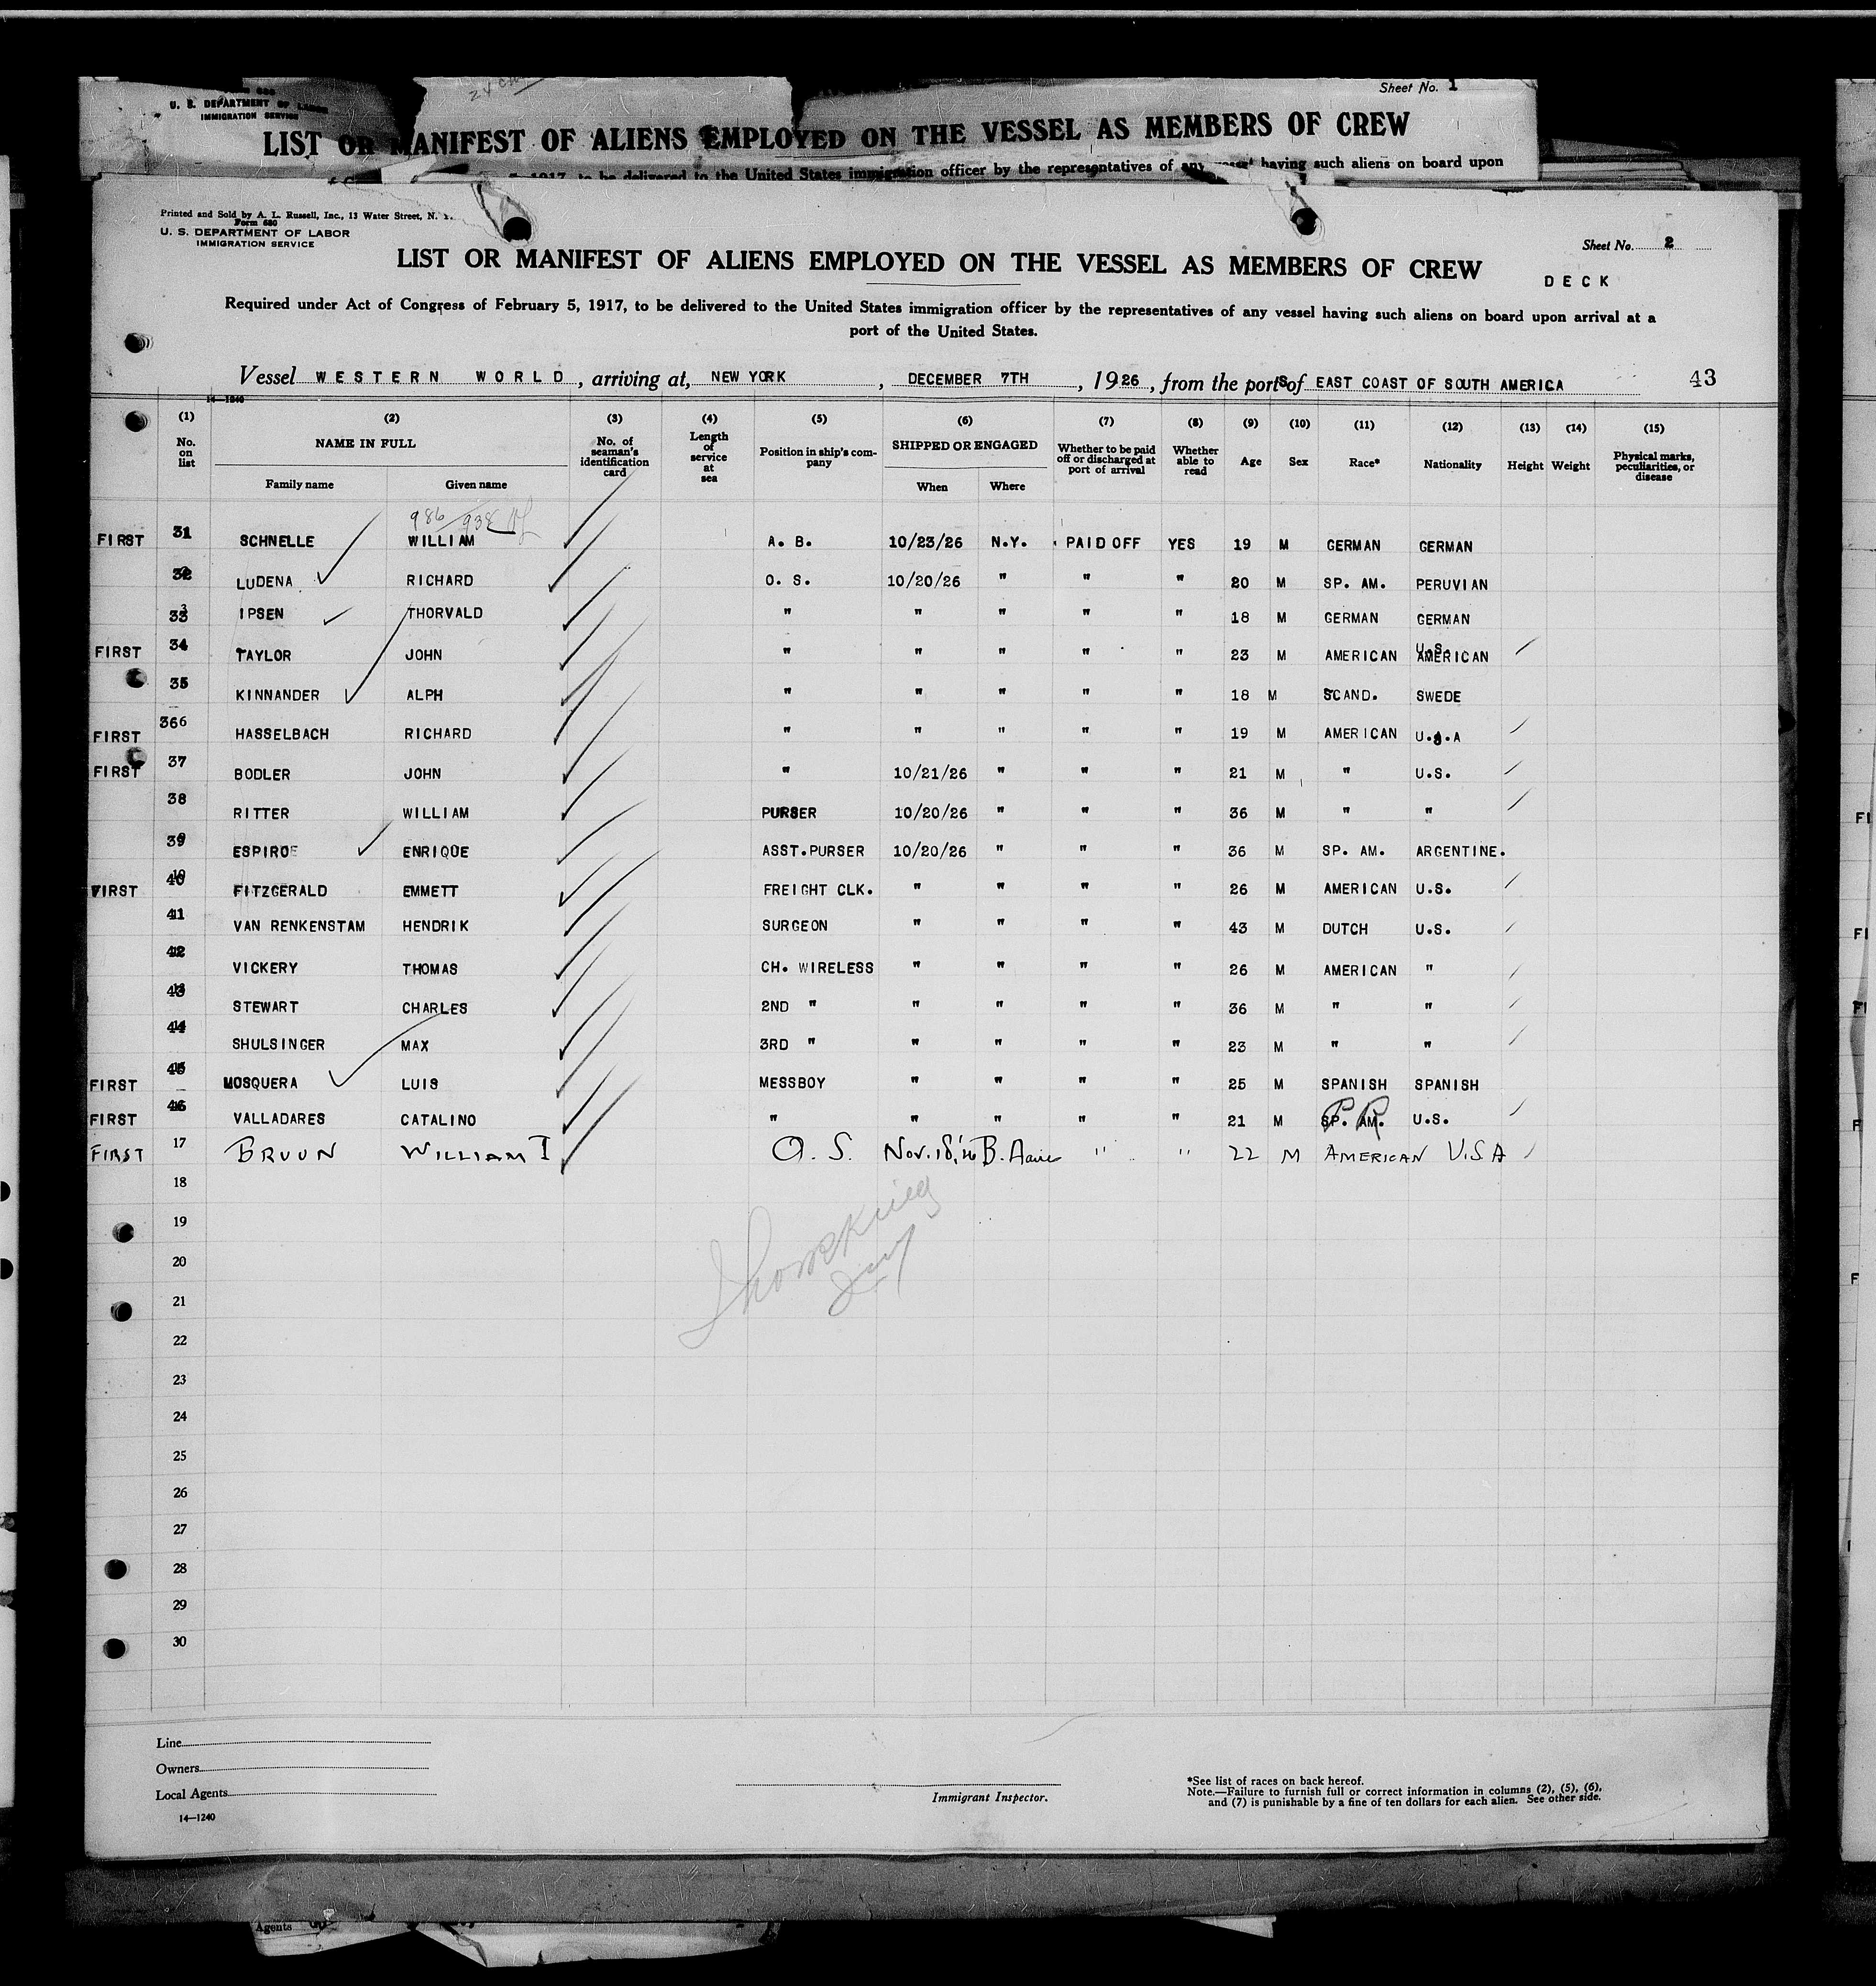 U. S. DEPARTMENT OF LABOR
IMMIGRATION SERVICE
Sheet No. 1
LIST OR MANIFEST OF ALIENS EMPLOYED ON THE VESSEL AS MEMBERS OF CREW
1917, to be delivered to the United States immigration officer by the representatives of any vessel having such aliens on board upon
Printed and Sold by A. L. Russell, Inc., 13 Water Street, N. Y.
Form 680
U. S. DEPARTMENT OF LABOR
IMMIGRATION SERVICE
Sheet No. 2
LIST OR MANIFEST OF ALIENS EMPLOYED ON THE VESSEL AS MEMBERS OF CREW
DECK
Required under Act of Congress of February 5, 1917, to be delivered to the United States immigration officer by the representatives of any vessel having such aliens on board upon arrival at a
port of the United States.
Vessel WESTERN WORLD, arriving at, NEW YORK, DECEMBER 7TH, 1926, from the portSof EAST COAST OF SOUTH AMERICA 43
14-1240
(1) (2) (3) (4) (5) (6) (7) (8) (9) (10) (11) (12) (13) (14) (15)
No. on list NAME IN FULL Family name Given name No. of seaman's identification card Length of service at sea Position in ship's company SHIPPED OR ENGAGED When Where Whether to be paid off or discharged at port of arrival Whether able to read Age Sex Race* Nationality Height Weight Physical marks, peculiarities, or disease
986/938
FIRST 31 SCHNELLE WILLIAM A. B. 10/23/26 N.Y. PAID OFF YES 19 M GERMAN GERMAN
32 LUDENA RICHARD O. S. 10/20/26 " " " 20 M SP. AM. PERUVIAN
33 IPSEN THORVALD " " " " " 18 M GERMAN GERMAN
FIRST 34 TAYLOR JOHN " " " " " 23 M AMERICAN U.S. AMERICAN
35 KINNANDER ALPH " " " " " 18 M SCAND. SWEDE
FIRST 366 HASSELBACH RICHARD " " " " " 19 M AMERICAN U.S.A
FIRST 37 BODLER JOHN " 10/21/26 " " " 21 M " U.S.
38 RITTER WILLIAM PURSER 10/20/26 " " " 36 M " "
39 ESPIROE ENRIQUE ASST.PURSER 10/20/26 " " " 36 M SP. AM. ARGENTINE.
FIRST 40 FITZGERALD EMMETT FREIGHT CLK. " " " " 26 M AMERICAN U.S.
41 VAN RENKENSTAM HENDRIK SURGEON " " " " 43 M DUTCH U.S.
42 VICKERY THOMAS CH. WIRELESS " " " " 26 M AMERICAN "
43 STEWART CHARLES 2ND " " " " " 36 M " "
44 SHULSINGER MAX 3RD " " " " " 23 M " "
FIRST 45 MOSQUERA LUIS MESSBOY " " " " 25 M SPANISH SPANISH
FIRST 46 VALLADARES CATALINO " " " " " 21 M SP. AM. P R U.S.
FIRST 17 BRUUN WILLIAM I O. S. Nov. 18, '26 B. Aires " " 22 M AMERICAN U.S A
18
19
20
21
22
23
24
25
26
27
28
29
30
Line
Owners
Local Agents
14-1240
Immigrant Inspector.
*See list of races on back hereof.
Note.—Failure to furnish full or correct information in columns (2), (5), (6),
and (7) is punishable by a fine of ten dollars for each alien. See other side.
Agents